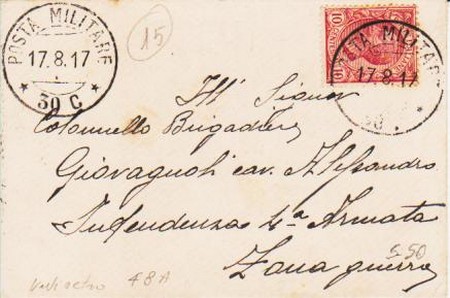 POSTA MILITARE
17.8.17
* 39 C *
15
10 10
POSTA MILITARE
17.8.17
Ill' Signor
Colonnello Brigadiere
Giovagnoli cav. Alessandro
Intendenza 4ª Armata
Zona guerra
5 50
48A